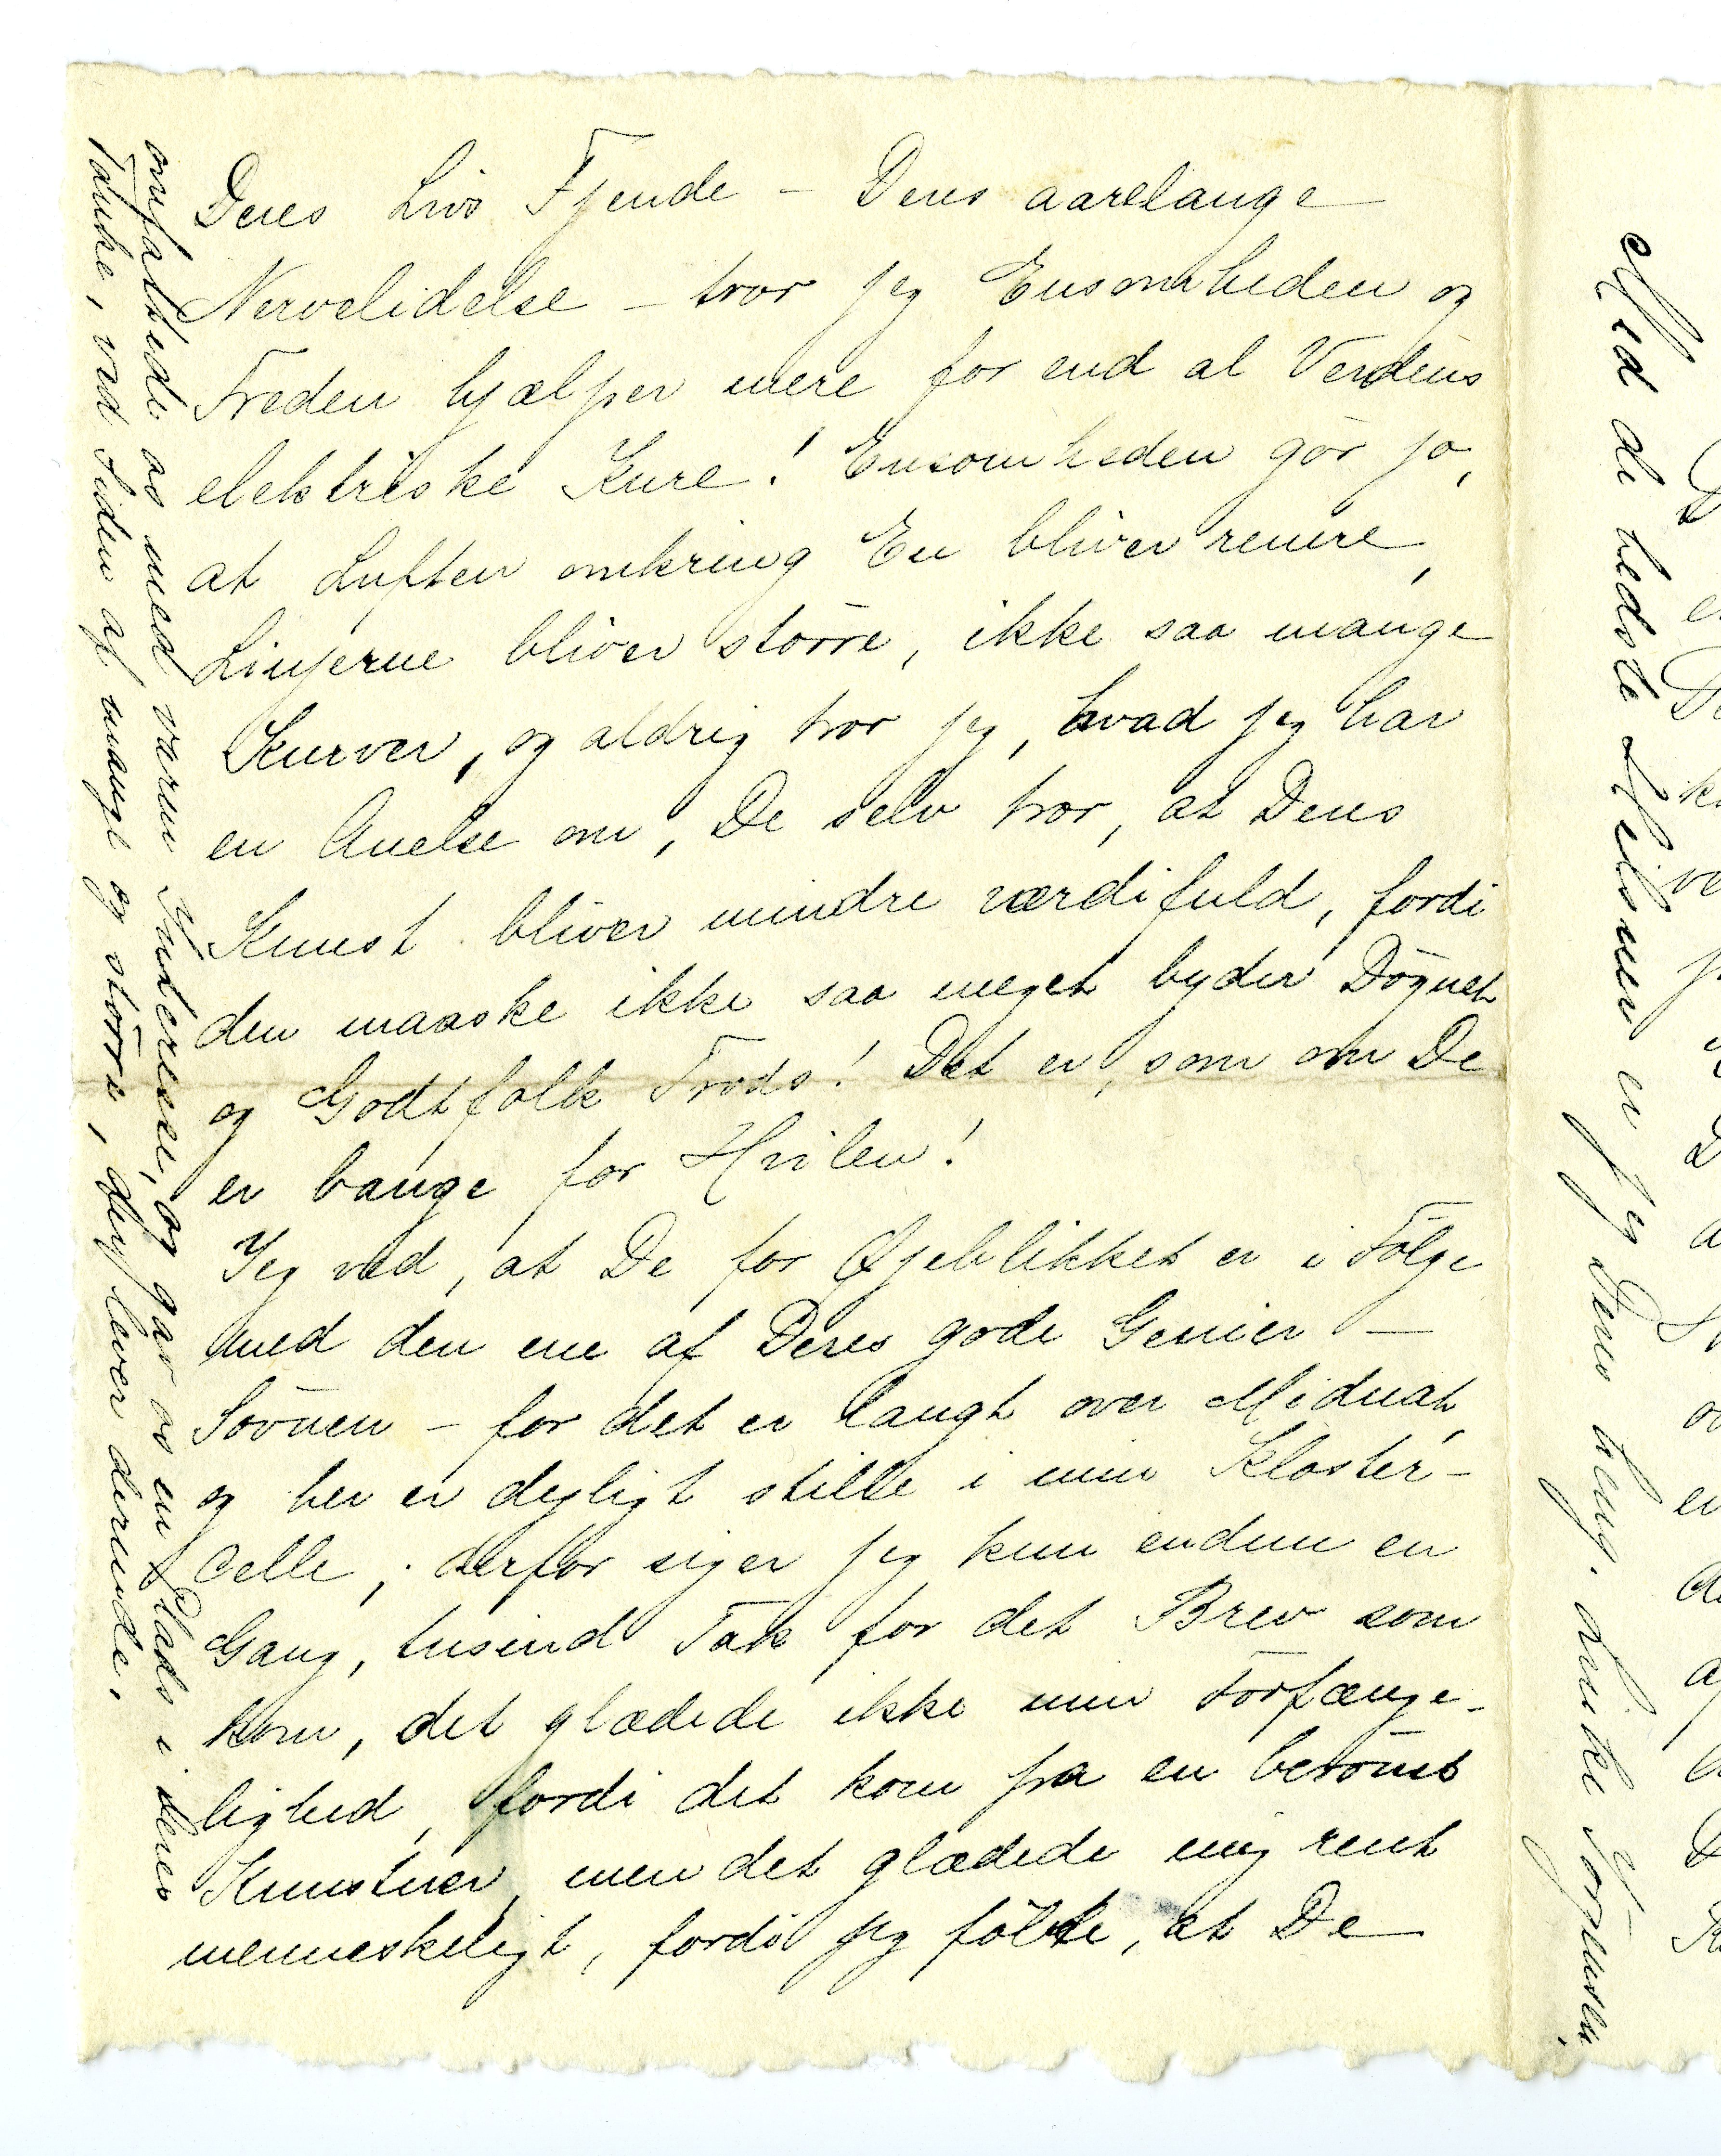 Deres Livs Fjende – Deres aarelange
Nervelidelse – tror jeg Ensomheden og
Freden hjælper mere for end al Verdens
elektriske Kure! Ensomheden gör jo,
at Luften omkring En bliver renere,
Linjerne bliver större, ikke saa mange
Kurver, og aldrig tror jeg, hvad jeg har
en Anelse om, De selv tror, at Deres
Kunst bliver mindre værdifuld, fordi
den maaske ikke saa meget byder Dögnet
og Godtfolk Trods! Det er, som om De
er bange for Hvilen!
Jeg ved, at De for Øjeblikket er i Fölge
med den ene af Deres gode Genier –
Sövnen – for det er langt over Midnat,
og her er dejligt stille i min Kloster-
celle, derfor siger jeg kun endnu en
Gang, tusind Tak for det Brev som
kom, det glædede ikke min Forfænge-
lighed, fordi det kom fra en berömt
Kunstner, men det glædede mig rent
menneskeligt, fordi jeg fölte, at De
omfattede os med varm Interesse, og gav os en Plads i Deres
Tanke, ved Siden af mange og större, der lever derinde.
Med de bedste Hilsner er jeg Deres heng.